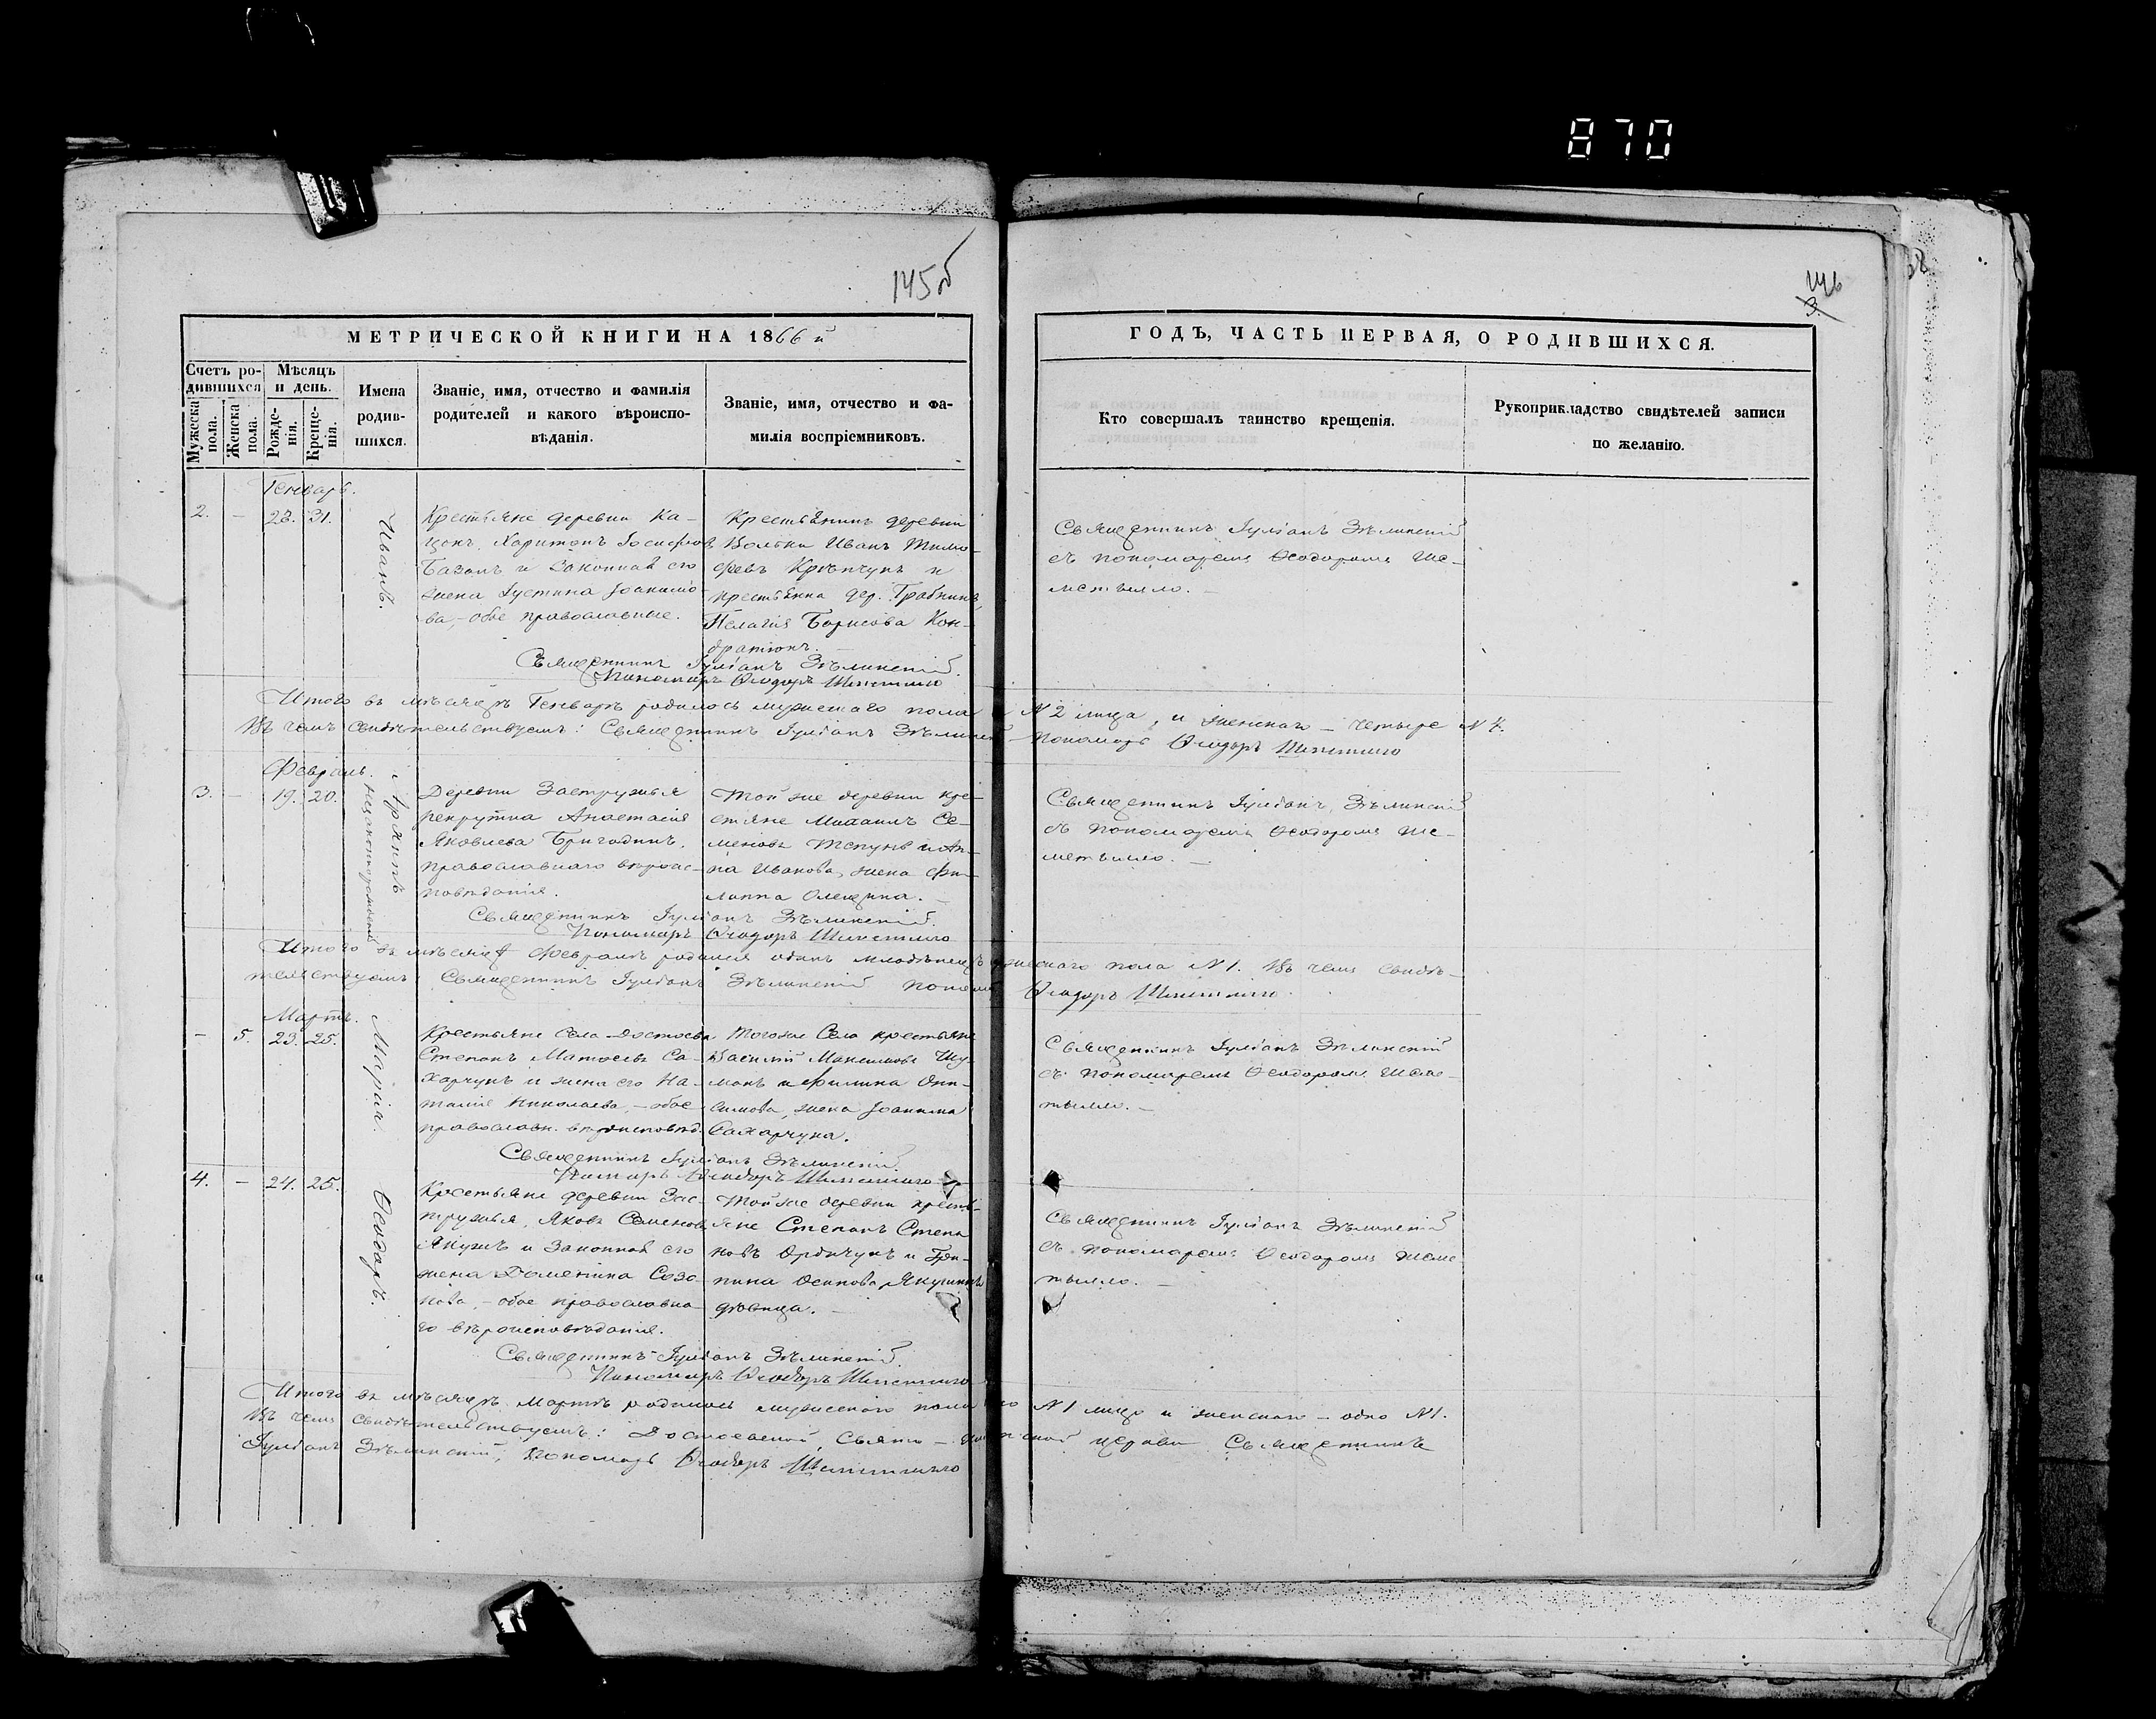 870
145об
146
3.
38
МЕТРИЧЕСКОЙ КНИГИ НА 1866 й
ГОДЪ, ЧАСТЬ ПЕРВАЯ, О РОДИВШИХСЯ.
Счетъ ро-
дившихся
Мужеска
пола.
Женска
пола.
Мѣсяцъ
и день.
Рожде-
нія.
Креще-
нія.
Имена
родив-
шихся.
Званіе, имя, отчество и фамилія
родителей и какого вѣроиспо-
вѣданія.
Званіе, имя, отчество и фа-
милія воспріемниковъ.
Кто совершалъ таинство крещенія.
Рукоприкладство свидѣтелей записи
по желанію.
Генварь.
2. - 31.
Иванъ.
Крестьяне деревни Ка-
Харитонъ Іосифовъ
и законная его
жена Іустина Іоакимо-
ва, - обое православные.
Крестьянинъ деревни
Вольки Иванъ Тимо-
феевъ и
крестьянка дер.
Пелагія Борисова Кон-
дратюкъ.
Священникъ Іуліанъ
съ пономаремъ Ѳеодоромъ Ше-
метылло. -
Священникъ Іуліанъ
Пономарь Ѳеодоръ Шеметылло
Итого въ мѣсяцѣ Генварѣ родилось мужескаго пола N 2 лица, и женскаго - четыре N 4.
Въ чемъ свидѣтельствуемъ: Священникъ Іуліанъ Пономарь Ѳеодоръ Шеметылло
Февраль.
3. - 19. 20.
Архипъ
незаконнорожденный
Деревни Застружья
рекрутка Анастасія
Яковлева
православнаго вѣроис-
повѣданія.
Той же деревни кре-
стьяне Михаилъ Се-
меновъ и Ан-
на Иванова, жена Фи-
липпа
Священникъ Іуліанъ
съ пономаремъ Ѳеодоромъ Ше-
метылло. -
Священникъ Іуліанъ
Пономарь Ѳеодоръ Шеметылло
Итого въ мѣсяцѣ Февралѣ родился одинъ младенецъ мужескаго пола N 1. Въ чемъ свидѣ-
тельствуемъ: Священникъ Іуліанъ Пономарь Ѳеодоръ Шеметылло.
Мартъ.
- 5. 23. 25.
Марія.
Крестьяне села Достоева
Степанъ Матѳеевъ Са-
харчукъ и жена его На-
талія Николаева, - обое
православн. вѣроисповѣд.
Тогоже села крестьяне
Василій Максимовъ Шу-
макъ и Филина Они-
симова, жена Іоакима
Сахарчука.
Священникъ Іуліанъ
съ пономаремъ Ѳеодоромъ Шеме-
тылло. -
Священникъ Іуліанъ
Пономарь Ѳеодоръ Шеметылло
4. - 24. 25.
Ѳеодоръ.
Крестьяне деревни Зас-
тружья, Яковъ Семеновъ
и законная его
жена Доменика Созо-
нова, - обое православна-
го вѣроисповѣданія.
Той же деревни кресть-
яне Степанъ Степа-
новъ и
Осипова
дѣвица. -
Священникъ Іуліанъ
съ пономаремъ Ѳеодоромъ Шеме-
тылло. -
Священникъ Іуліанъ
Пономарь Ѳеодоръ Шеметылло
Итого въ мѣсяцѣ Мартѣ родилось мужескаго пола N 1 лицо и женскаго - одно N 1.
Въ чемъ свидѣтельствуемъ: Достоевской, Свято- церкви Священникъ
Іуліанъ Пономарь Ѳеодоръ Шеметылло